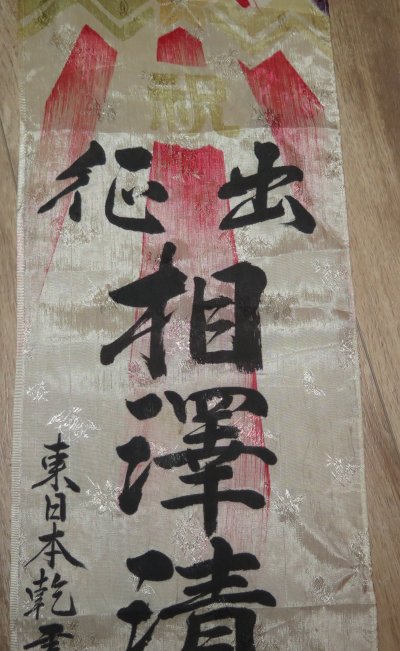 祝
出征
相澤清
東日本乾電